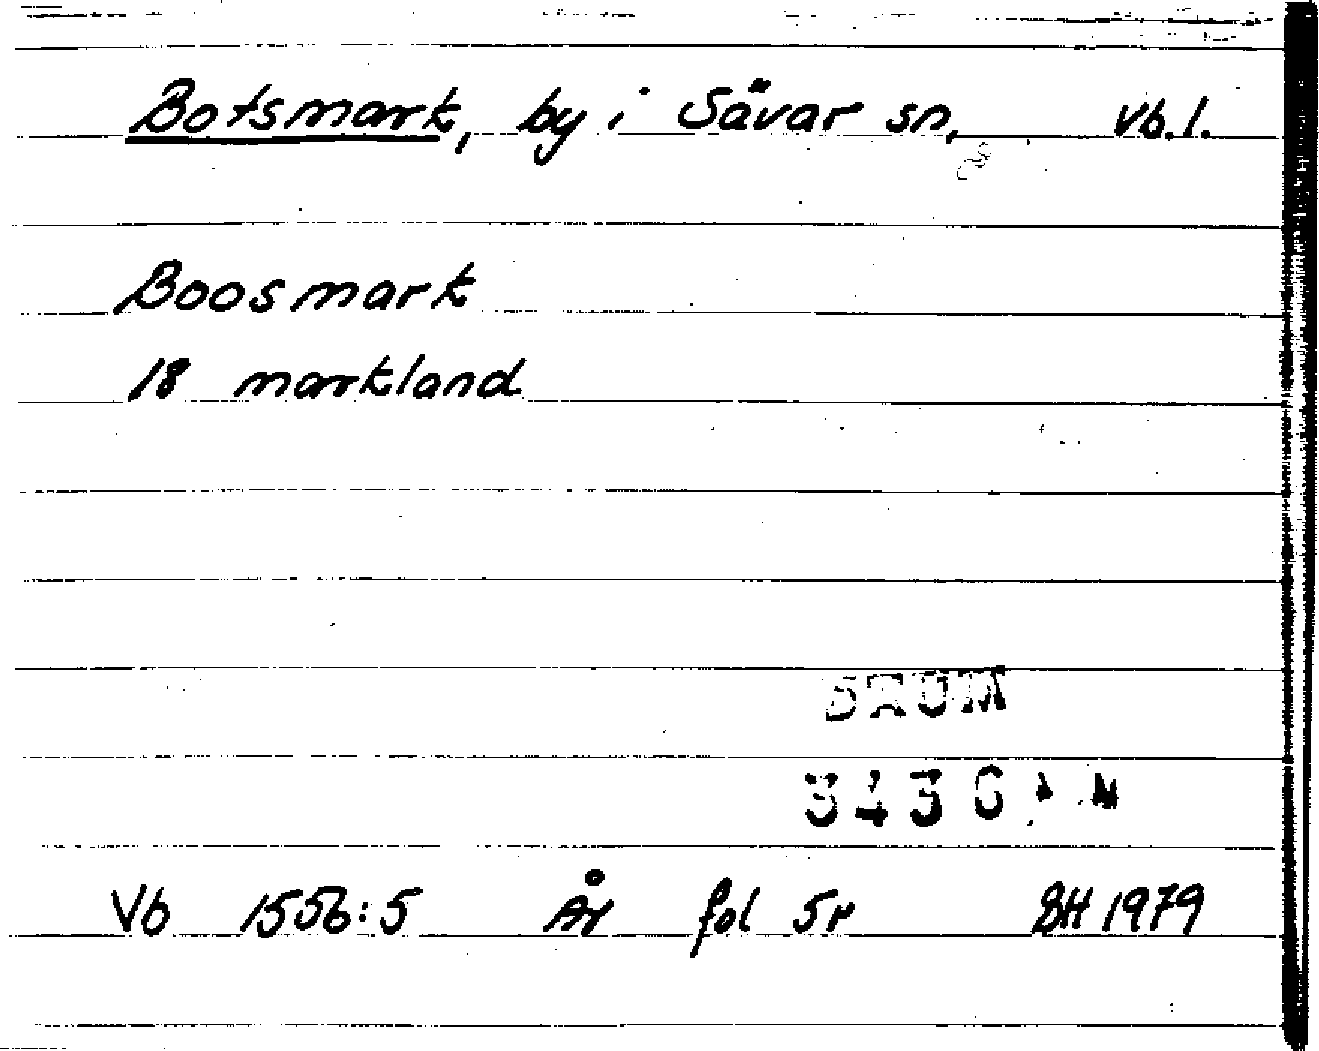 Botsmark, by i Sävar sn, Vb. l.
Boosmark
18 markland
DAUM
3436
Vb 1556:5 År fol 5r SH 1979